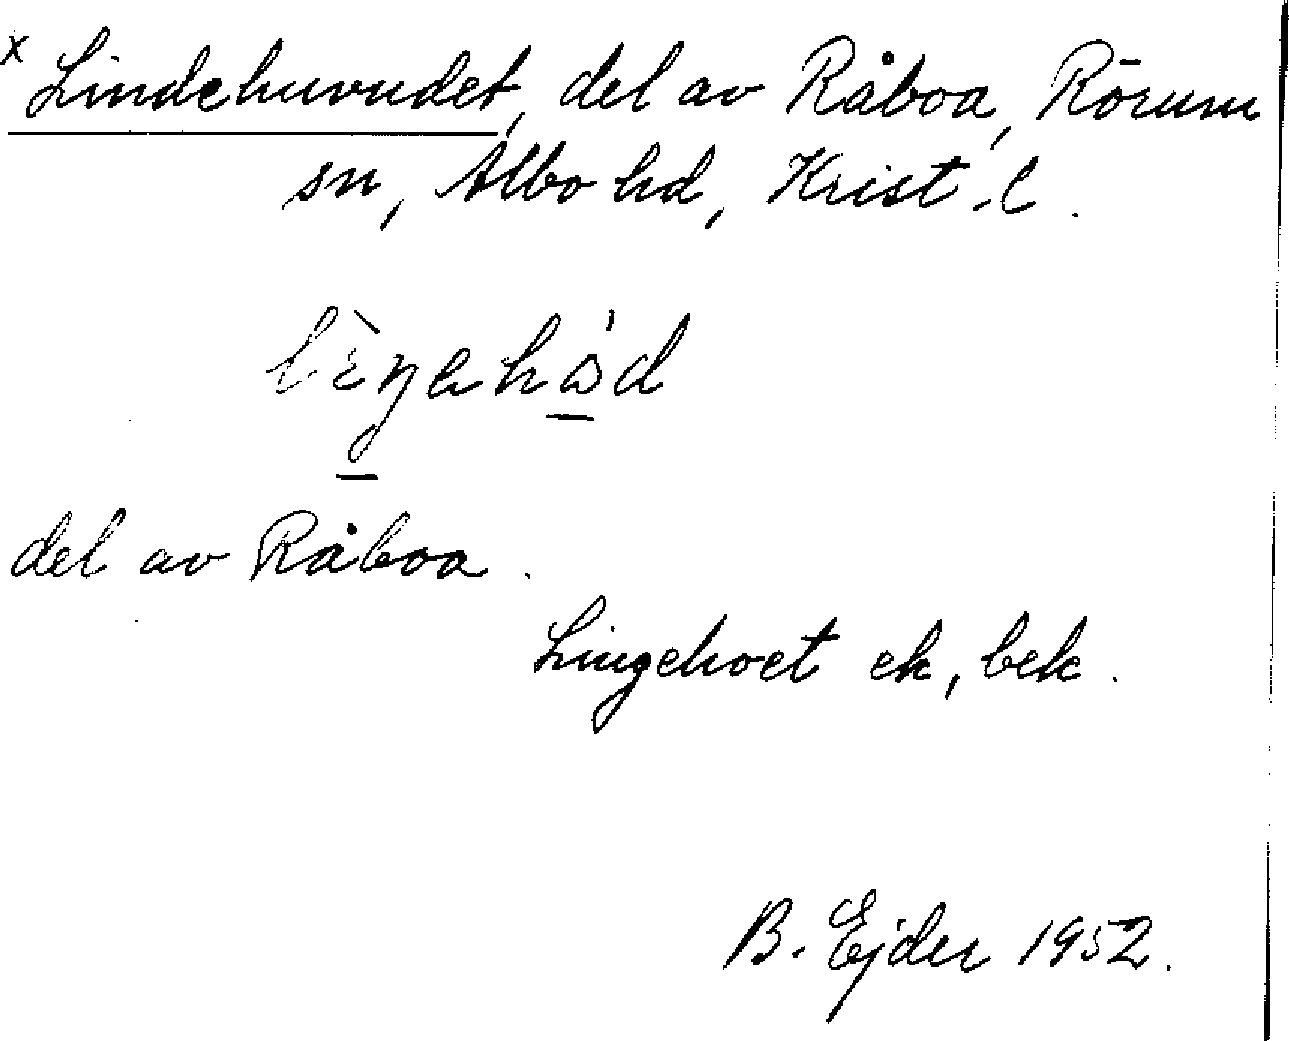 x Lindehuvudet, del av Råboa, Rörum
sn, Albo hd, Krist.l.
del av Råboa.
Lingehoet ek, bek.
B. Ejder 1952.